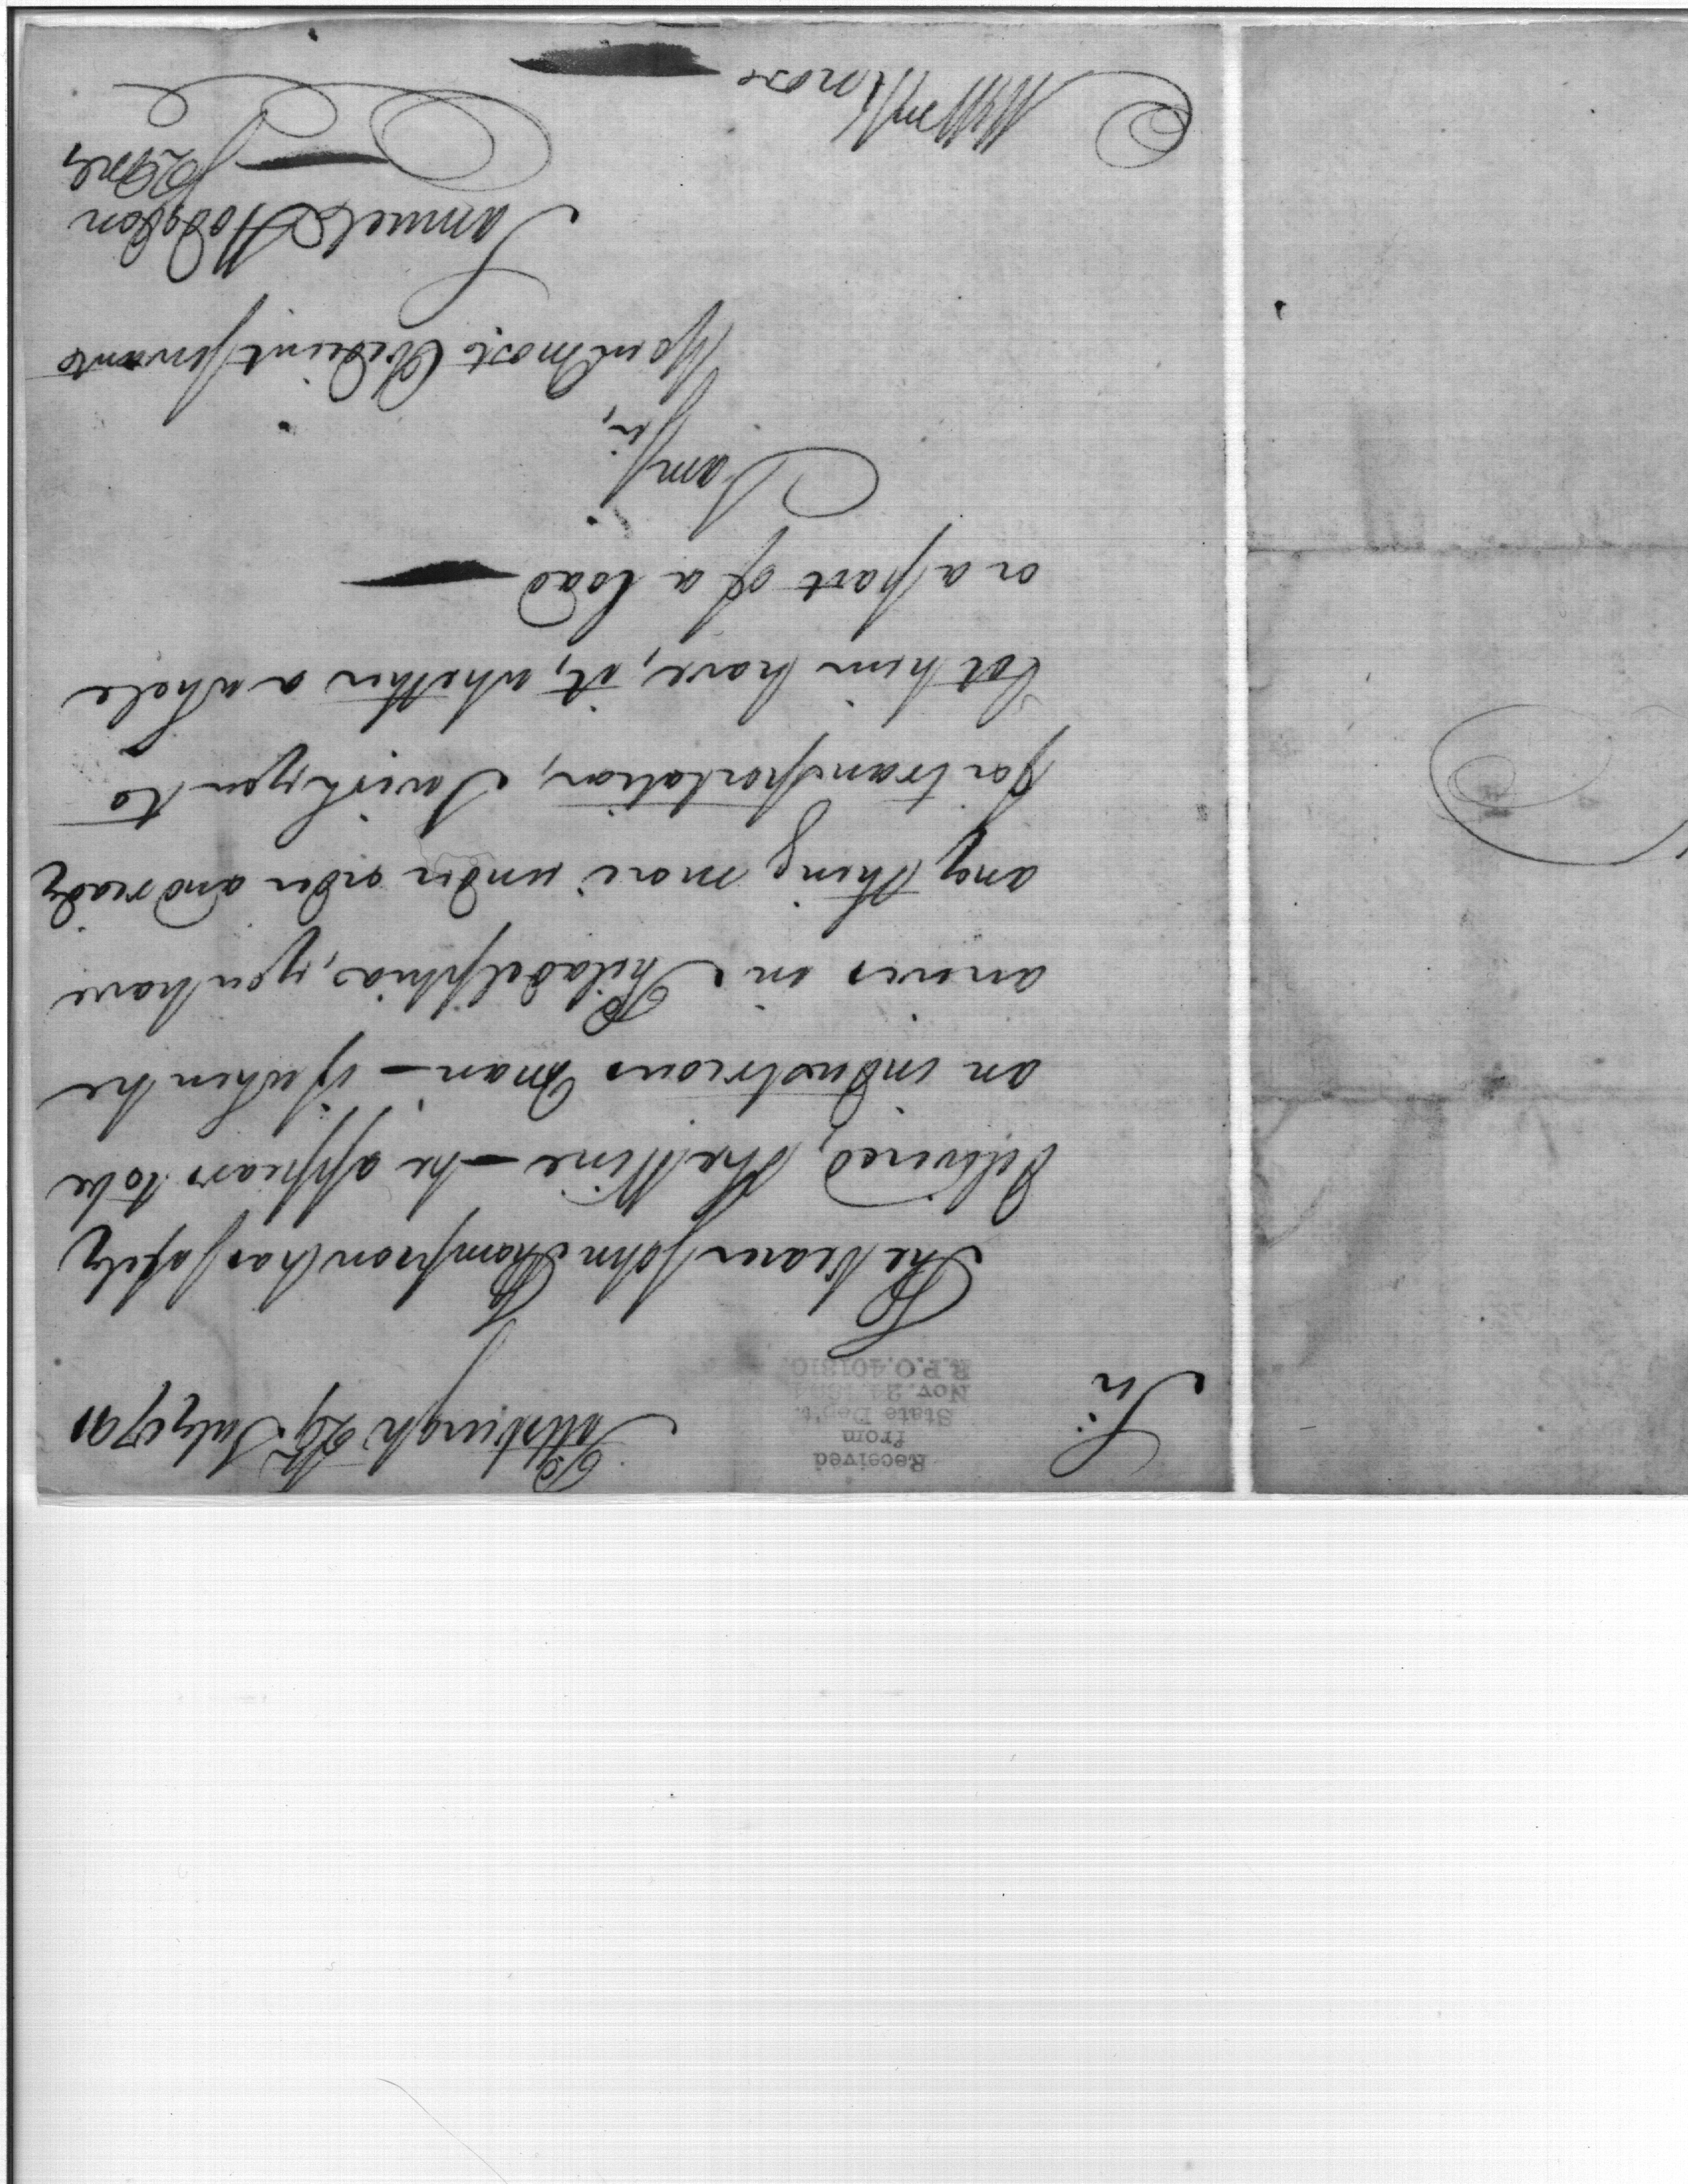 Pittsburgh 29th July 1791
Sir
Received
from
State Dep't.
Nov. 24 1894
R.P.O. 401810.
The bearer John Thompson has safely
delivered, the Wine — he appears to be
an industrious man — if when he
arrives in Philadelphia, you have
any thing more under order and ready
for transportation, I wish you to
let him have, it, whether a whole
or a part of a load
I am Sir,
Your most Obedient Servant
Samuel Hodgdon
QMG